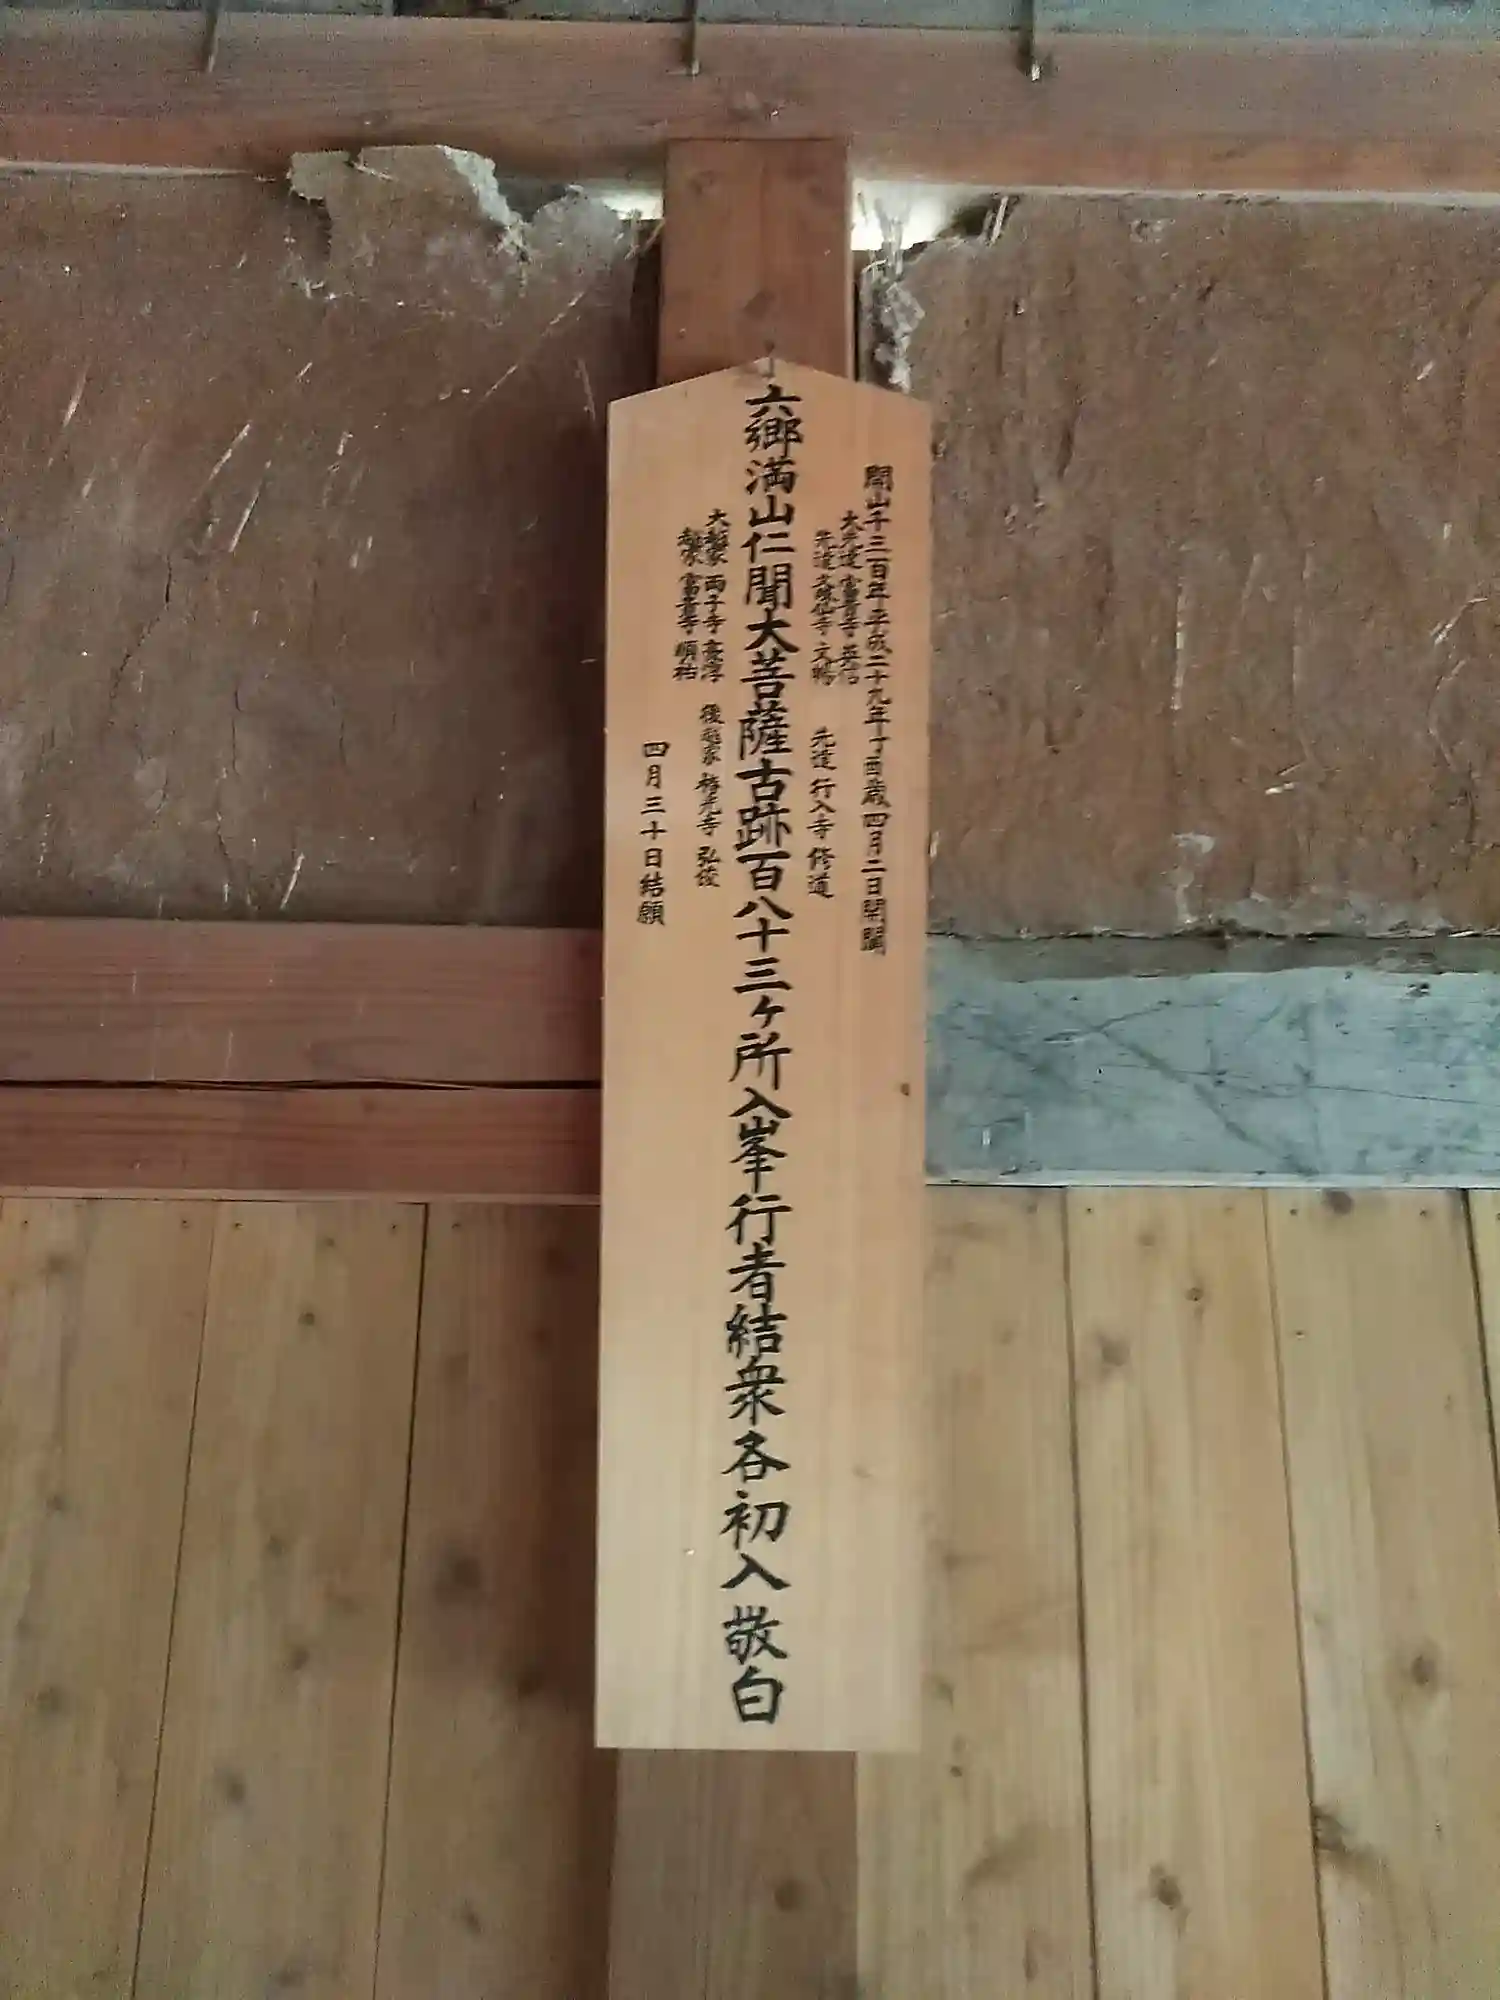 開山千三百年 平成二十九年丁酉歳四月二日開闢
大先達 富貴寺 英信
先達 文殊仙寺 文暢 先達 行入寺 修道
六郷満山仁聞大菩薩古跡百八十三ヶ所入峯行者結衆各初入敬白
大越家 両子寺 豪淳 後越家 椿光寺 弘俊
越家 富貴寺 順祐
四月三十日結願